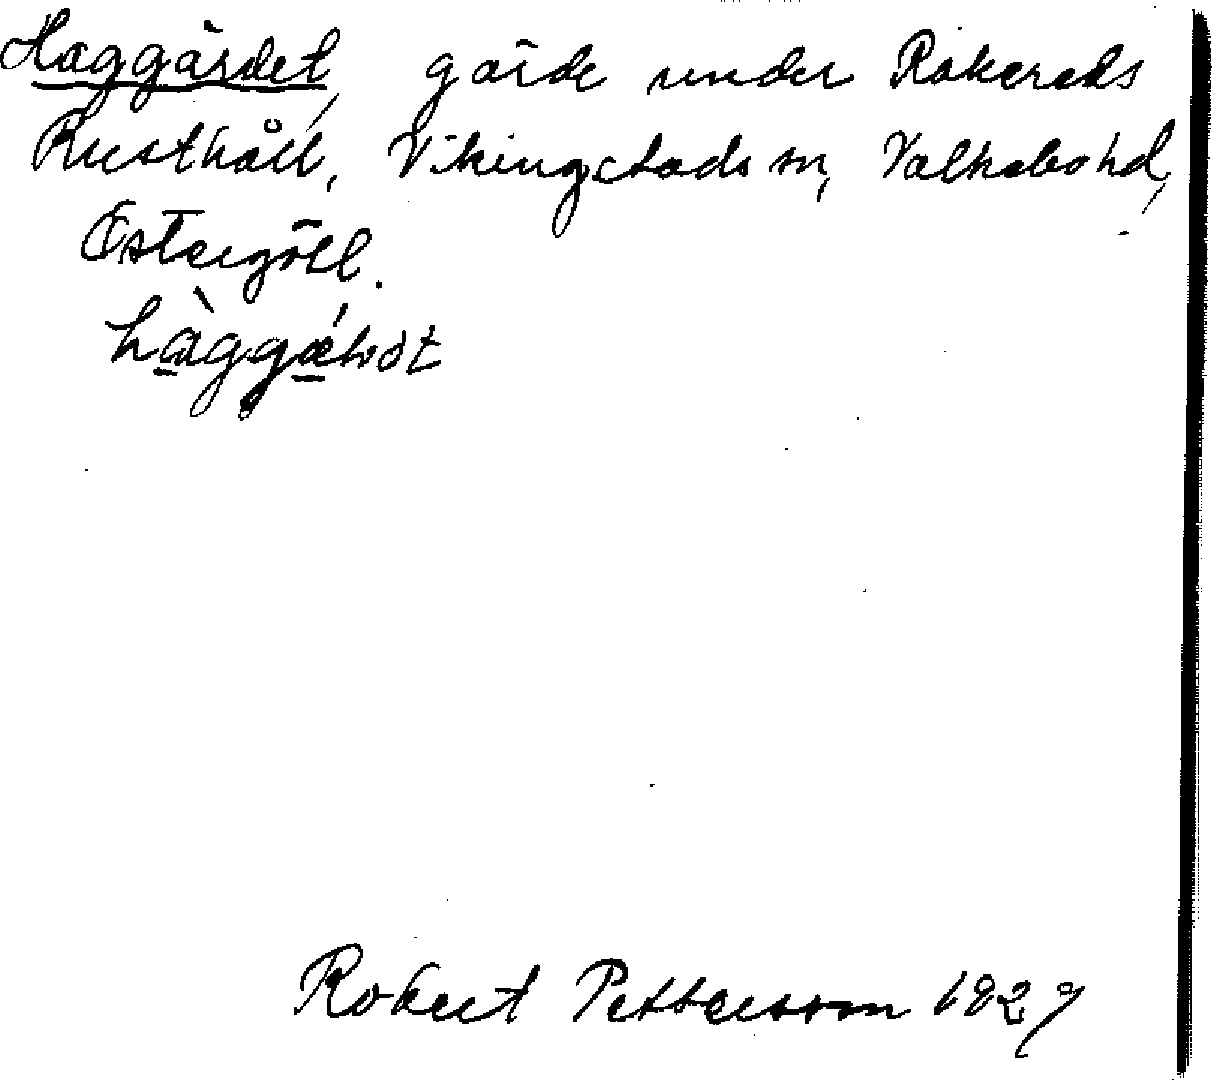 Haggärdet, gärde under Rakereds
Rusthåll, Vikingstads sn, Valkebo hd,
Östergötl.
hàggǽrdət
Robert Pettersson 1929